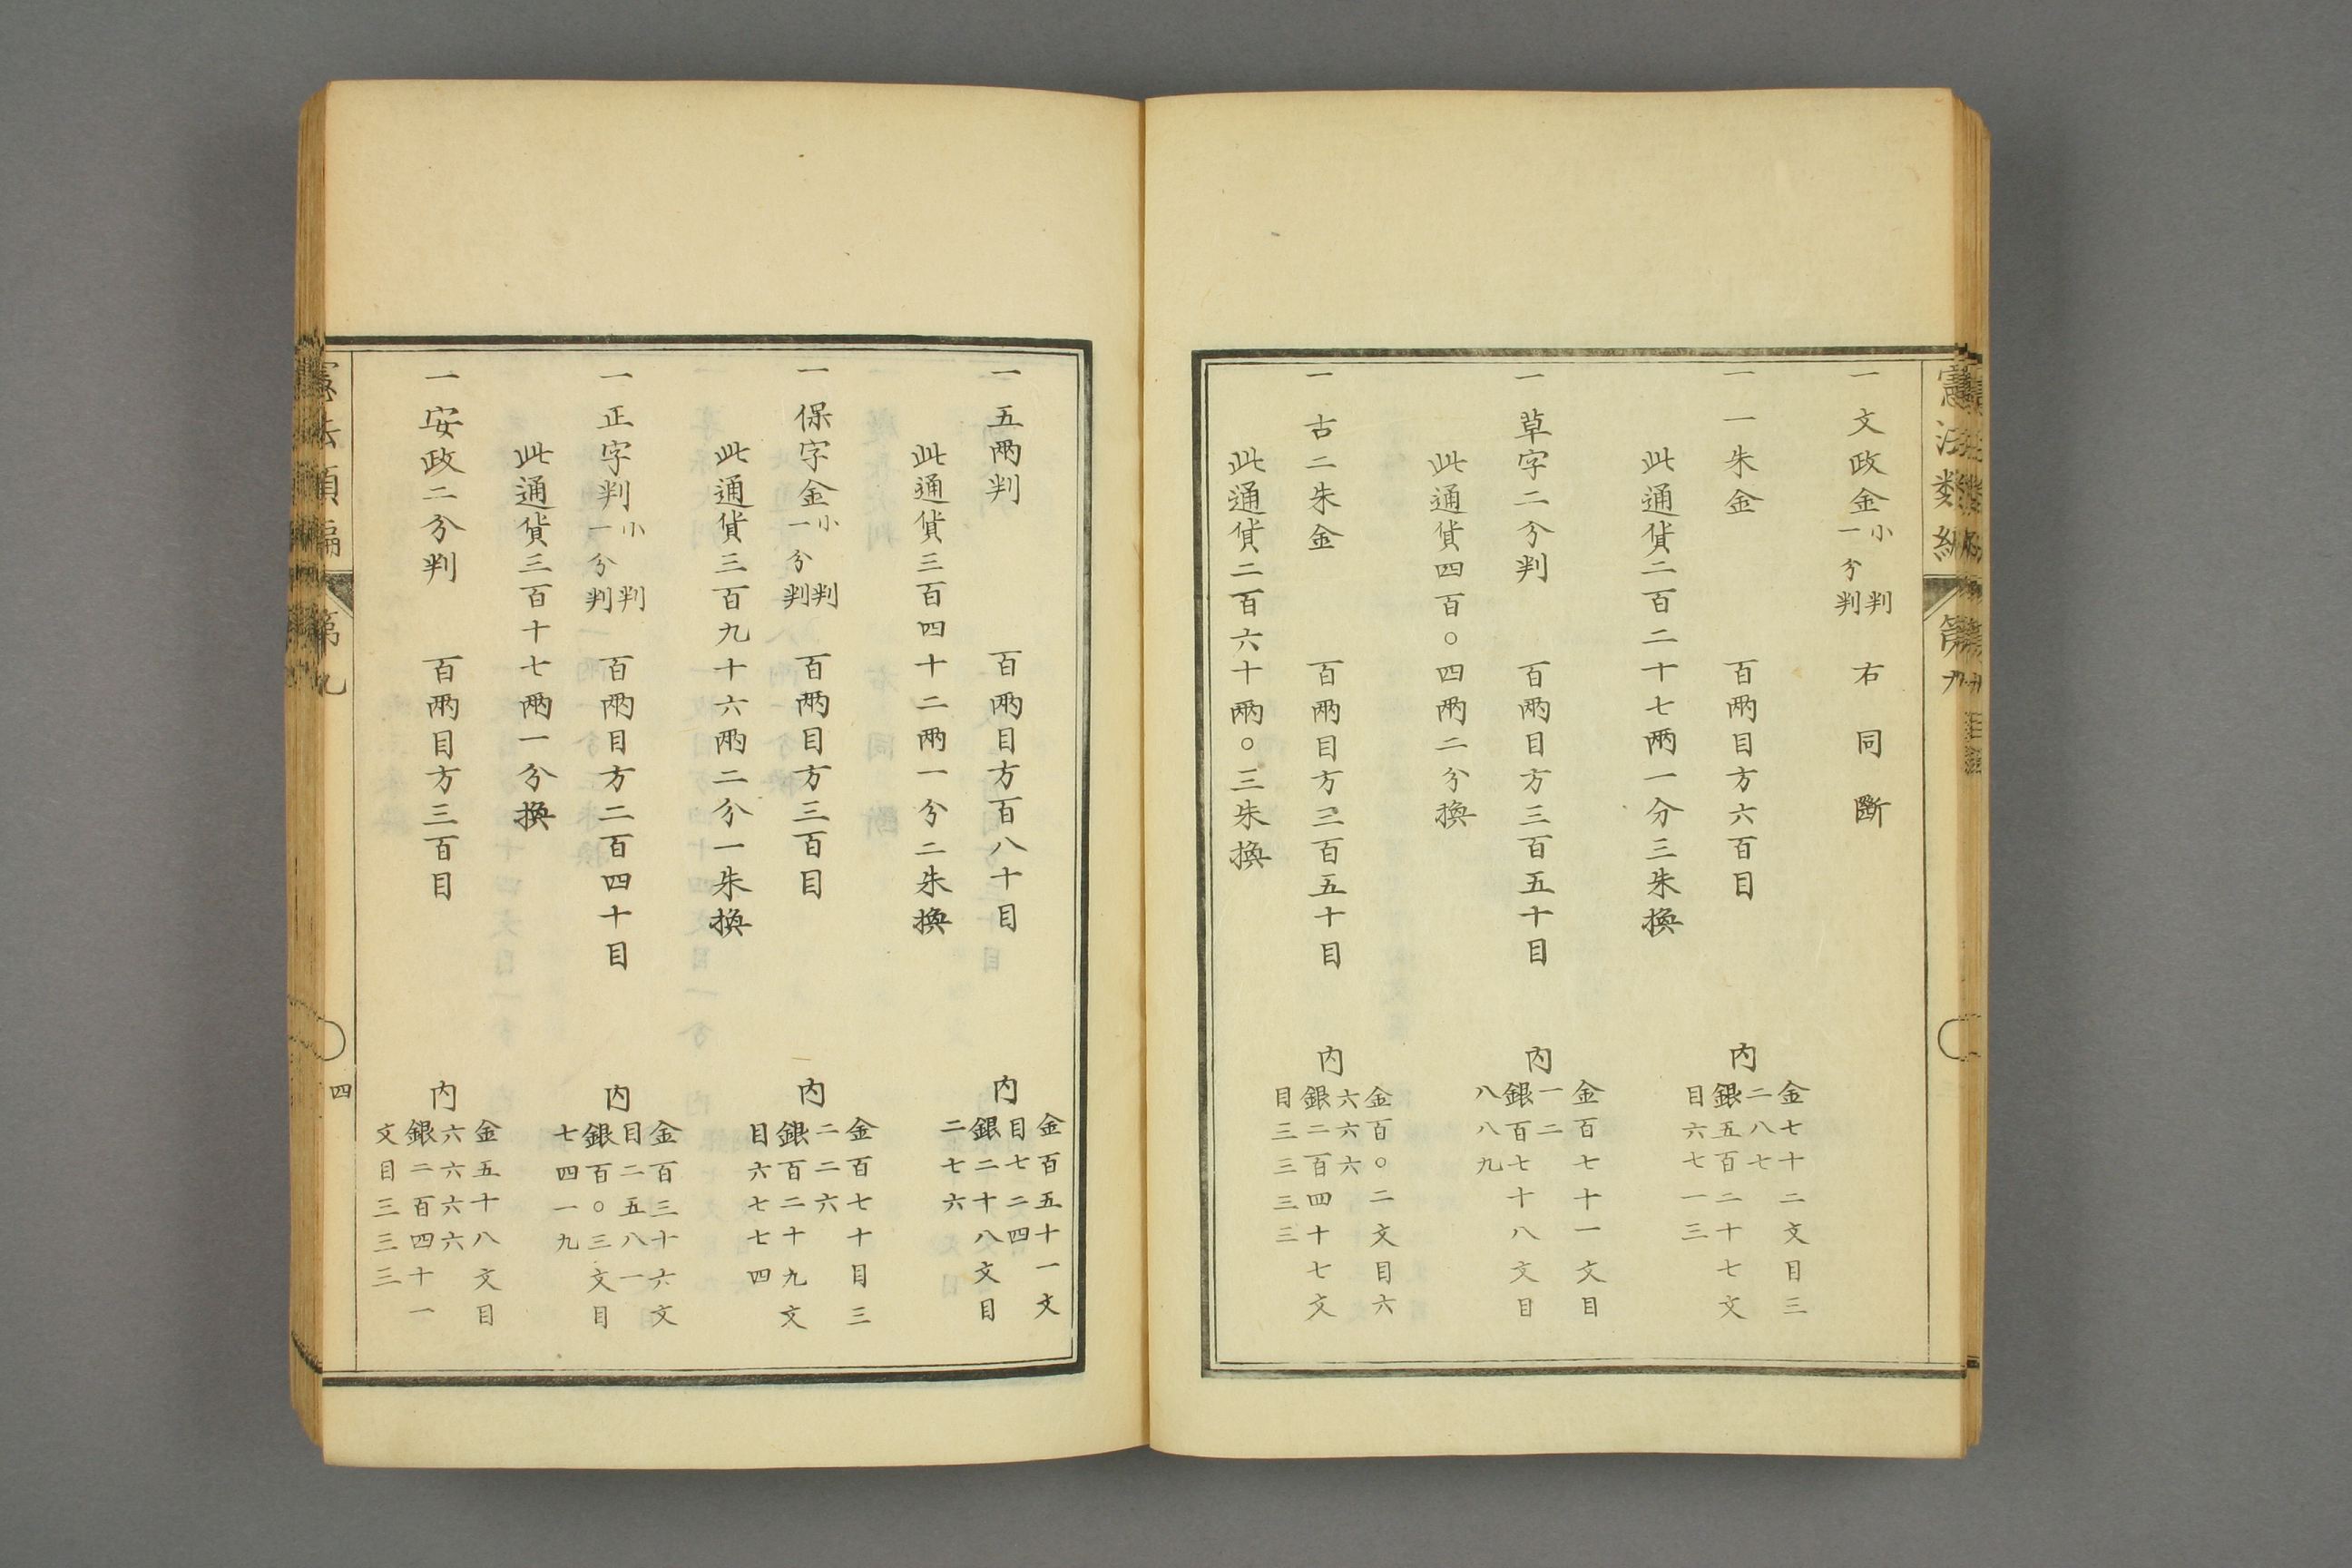 憲法類編 第九
一文政金 小判 一分判 右同斷
一一朱金 百兩目方六百目 内 金七十二文目三二八七 銀五百二十七文目六七一三
此通貨二百二十七兩一分三朱換
一草字二分判 百兩目方三百五十目 内 金百七十一文目一二 銀百七十八文目八八九
此通貨四百〇四兩二分換
一古二朱金 百兩目方三百五十目 内 金百〇二文目六六六六 銀二百四十七文目三三三三
此通貨二百六十兩〇三朱換
一五兩判 百兩目方百八十目 内 金百五十一文目七二四 銀二十八文目二七六
此通貨三百四十二兩一分二朱換
一保字金 小判 一分判 百兩目方三百目 内 金百七十目三二二六 銀百二十九文目六七七四
此通貨三百九十六兩二分一朱換
一正字判 小判 一分判 百兩目方二百四十目 内 金百三十六文目二五八一 銀百〇三文目七四一九
此通貨三百十七兩一分換
一安政二分判 百兩目方三百目 内 金五十八文目六六六六 銀二百四十一文目三三三
憲法類編 第九 四